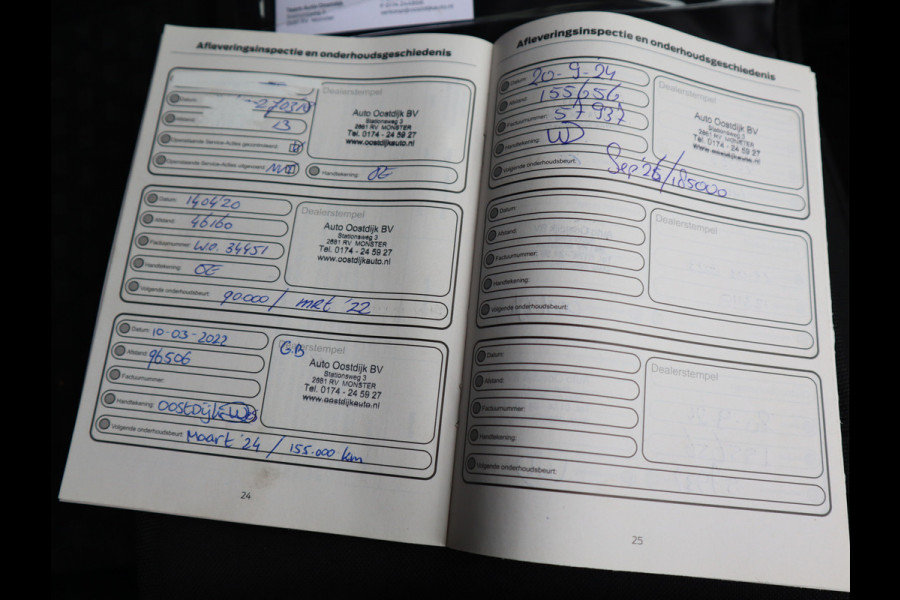 Team Auto Oostdijk
Afleveringsinspectie en onderhoudsgeschiedenis
Datum:
Afstand:
13
Openstaande Service-Acties gecontroleerd:
Openstaande Service-Acties uitgevoerd:
Handtekening: OE
Dealerstempel
Auto Oostdijk BV
Stationsweg 3
2681 RV MONSTER
Tel. 0174 - 24 59 27
www.oostdijkauto.nl
Datum: 14 04 '20
Afstand: 46160
Factuurnummer: W.O. 34451
Handtekening: OE
Volgende onderhoudsbeurt: 90000 / mrt '22
Dealerstempel
Auto Oostdijk BV
Stationsweg 3
2681 RV MONSTER
Tel. 0174 - 24 59 27
www.oostdijkauto.nl
Datum: 10-03-2022
Afstand: 96506
Factuurnummer:
Handtekening: OOSTDIJK
Volgende onderhoudsbeurt: Maart '24 / 155.000 km
G.B
Dealerstempel
Auto Oostdijk BV
Stationsweg 3
2681 RV MONSTER
Tel. 0174 - 24 59 27
www.oostdijkauto.nl
24
Afleveringsinspectie en onderhoudsgeschiedenis
Datum: 20-9-24
Afstand: 155656
Factuurnummer: 57937
Handtekening:
Volgende onderhoudsbeurt: Sep '26 / 185000
Dealerstempel
Auto Oostdijk BV
Stationsweg 3
2681 RV MONSTER
Tel. 0174 - 24 59 27
www.oostdijkauto.nl
Datum:
Afstand:
Factuurnummer:
Handtekening:
Volgende onderhoudsbeurt:
Dealerstempel
Datum:
Afstand:
Factuurnummer:
Handtekening:
Volgende onderhoudsbeurt:
Dealerstempel
25